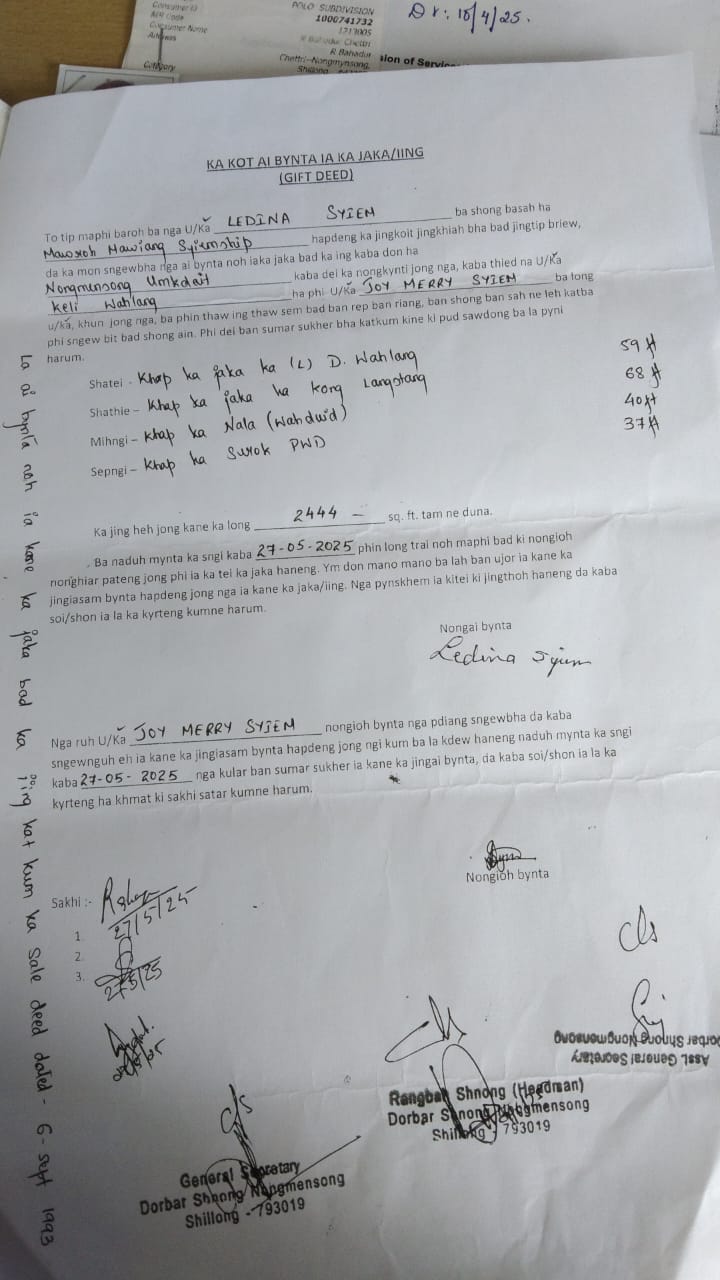 Consumer ID
POLO SUBDIVISION
1000741732
1213005
Consumer Name
R Bahadur Chettri
Address
R Bahadur
Chettri-Nongmynsong,
Category
Shillong
Dt: 18/4/25.
sion of Service
KA KOT AI BYNTA IA KA JAKA/IING
(GIFT DEED)
To tip maphi baroh ba nga U/Ka LEDINA SYIEM ba shong basah ha
Mawroh Mawiang Syiemship hapdeng ka jingkoit jingkhiah bha bad jingtip briew,
da ka mon sngewbha nga ai bynta noh iaka jaka bad ka ing kaba don ha
Nongmensong Umkdait kaba dei ka nongkynti jong nga, kaba thied na U/Ka
Keli Wahlang ha phi U/Ka JOY MERRY SYIEM ba long
u/ka, khun jong nga, ba phin thaw ing thaw sem bad ban rep ban riang, ban shong ban sah ne leh katba
phi sngew bit bad shong ain. Phi dei ban sumar sukher bha katkum kine ki pud sawdong ba la pyni
harum.
Shatei - Khap ka jaka ka (L) D. Wahlang 59 ft
Shathie - Khap ka jaka ka Kong Langstang 68 ft
Mihngi - Khap ka Nala (Wahduid) 40 ft
Sepngi - Khap ka Surok PWD 37 ft
Ka jing heh jong kane ka long 2444 - sq. ft. tam ne duna.
Ba naduh mynta ka sngi kaba 27-05-2025 phin long trai noh maphi bad ki nongioh
nonghiar pateng jong phi ia ka tei ka jaka haneng. Ym don mano mano ba lah ban ujor ia kane ka
jingiasam bynta hapdeng jong nga ia kane ka jaka/iing. Nga pynskhem ia kitei ki jingthoh haneng da kaba
soi/shon ia la ka kyrteng kumne harum.
Nongai bynta
Ledina Syiem
Nga ruh U/Ka JOY MERRY SYIEM nongioh bynta nga pdiang sngewbha da kaba
sngewnguh eh ia kane ka jingiasam bynta hapdeng jong ngi kum ba la kdew haneng naduh mynta ka sngi
kaba 27-05-2025 nga kular ban sumar sukher ia kane ka jingai bynta, da kaba soi/shon ia la ka
kyrteng ha khmat ki sakhi satar kumne harum.
Nongioh bynta
Sakhi :-
27/5/25
1.
2.
3.
27/5/25
Asst. General Secretary
Dorbar Shnong Nongmensong
Rangbah Shnong (Headman)
Dorbar Shnong Nongmensong
Shillong - 793019
General Secretary
Dorbar Shnong Nongmensong
Shillong - 793019
La ai bynta noh ia kane ka jaka bad ka ïing kat kum ka Sale deed dated - 6 - sept 1993